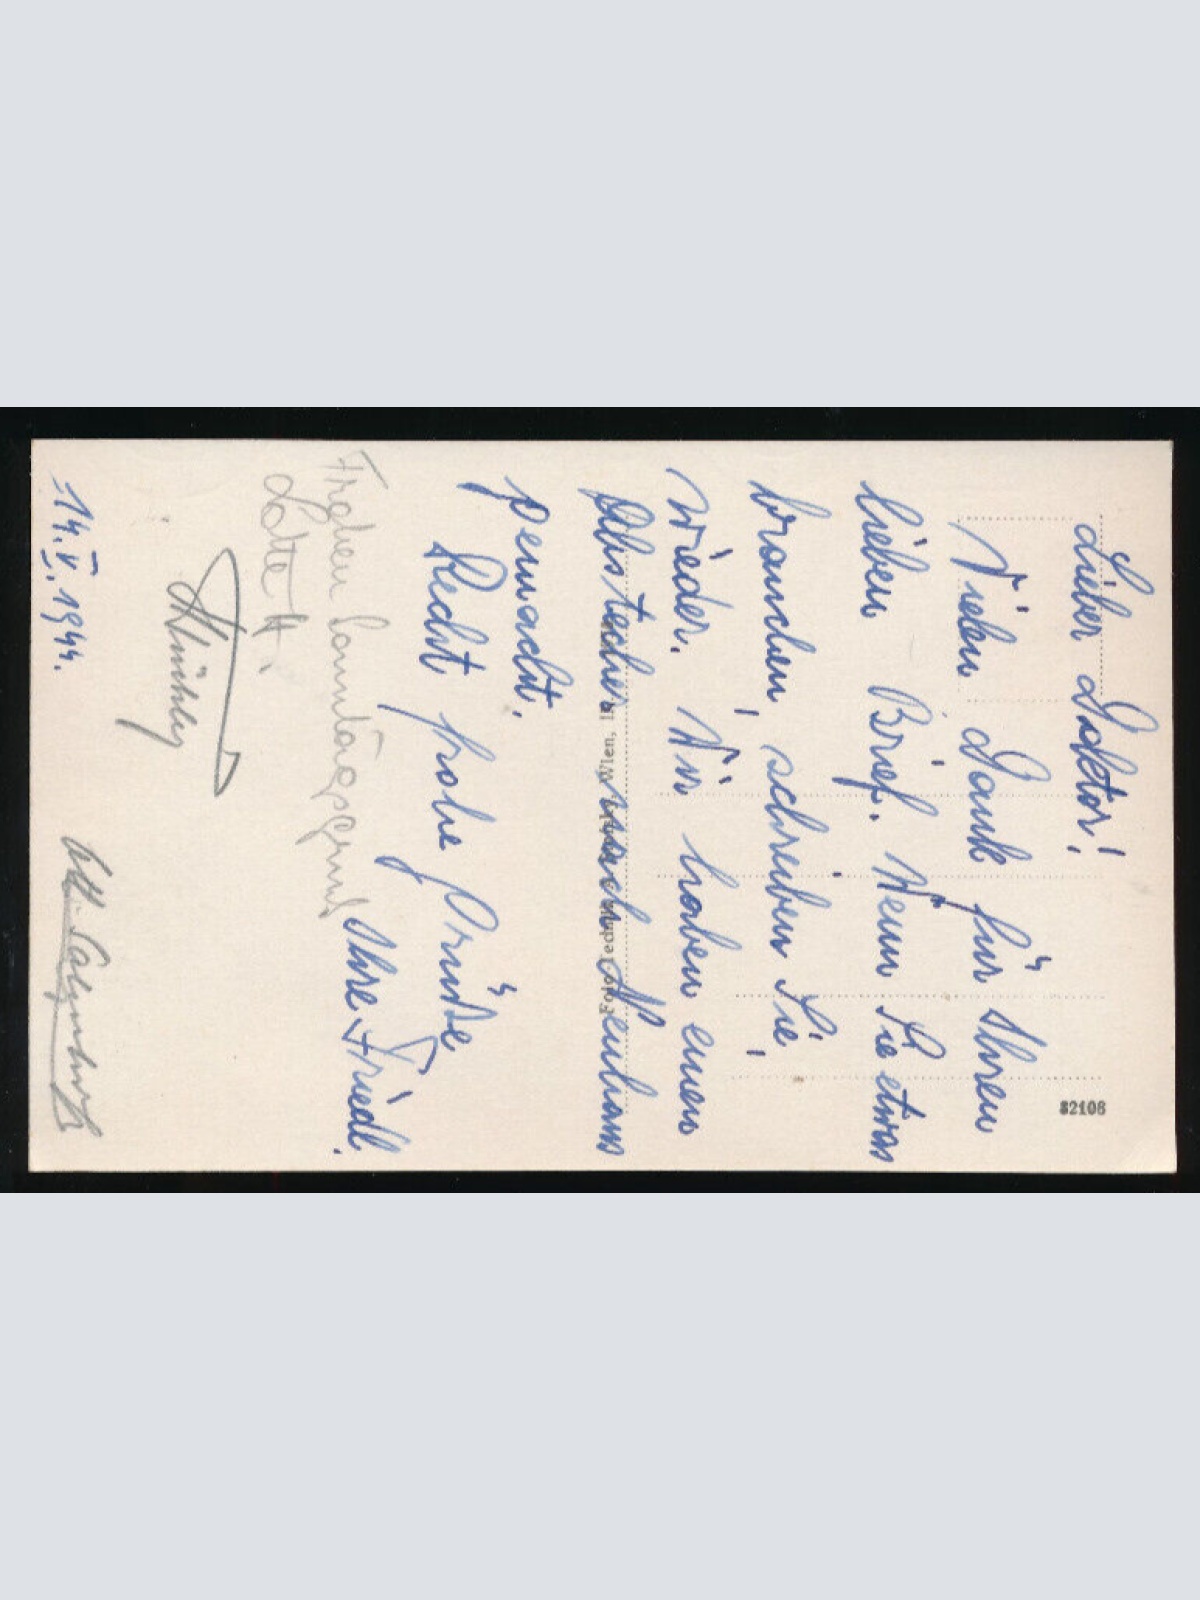 Lieber Doktor!
Vielen Dank für Ihren
lieben Brief. Wenn Sie etwas
brauchen, schreiben Sie
wieder. Wir haben einen
Abstecher nach Neuhaus
gemacht.
Recht frohe Grüße
Ihre Friedl.
Frohen Sonntagsgruß
Lotte H.
14.V.1944.
Wien, 18
82106